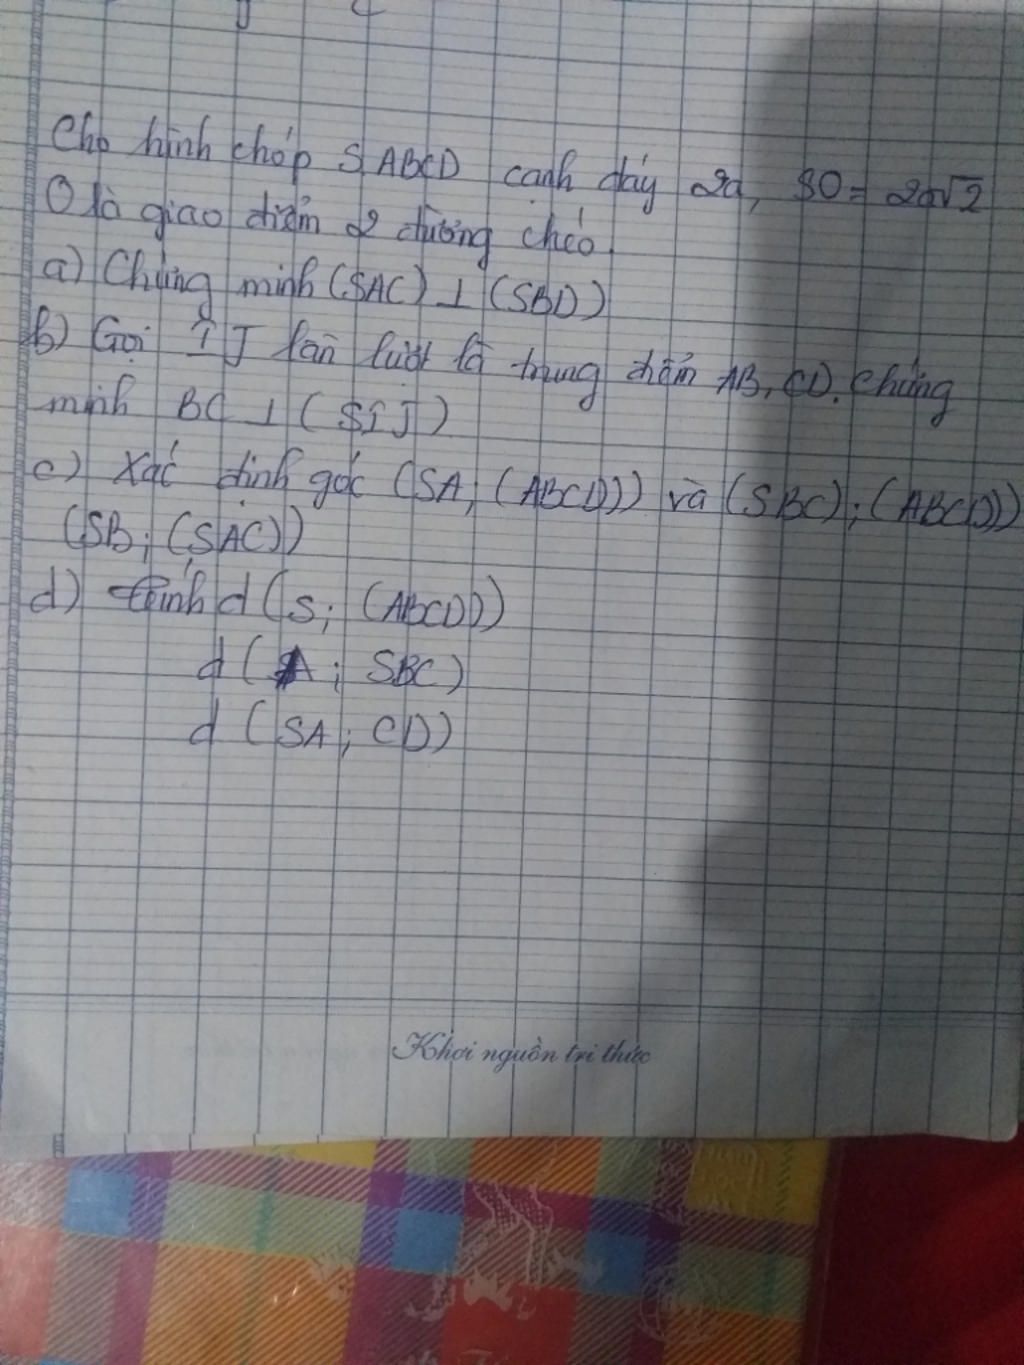 Cho hình chóp S.ABCD cạnh đáy 2a, SO = 2a√2
O là giao điểm 2 đường chéo.
a) Chứng minh (SAC) ⊥ (SBD)
b) Gọi I J lần lượt là trung điểm AB, CD. Chứng
minh BC ⊥ (SIJ)
c) Xác định góc (SA; (ABCD)) và (SBC); (ABCD))
(SB; (SAC))
d) tính d (S; (ABCD))
d (A; SBC)
d (SA; CD)
Khơi nguồn tri thức